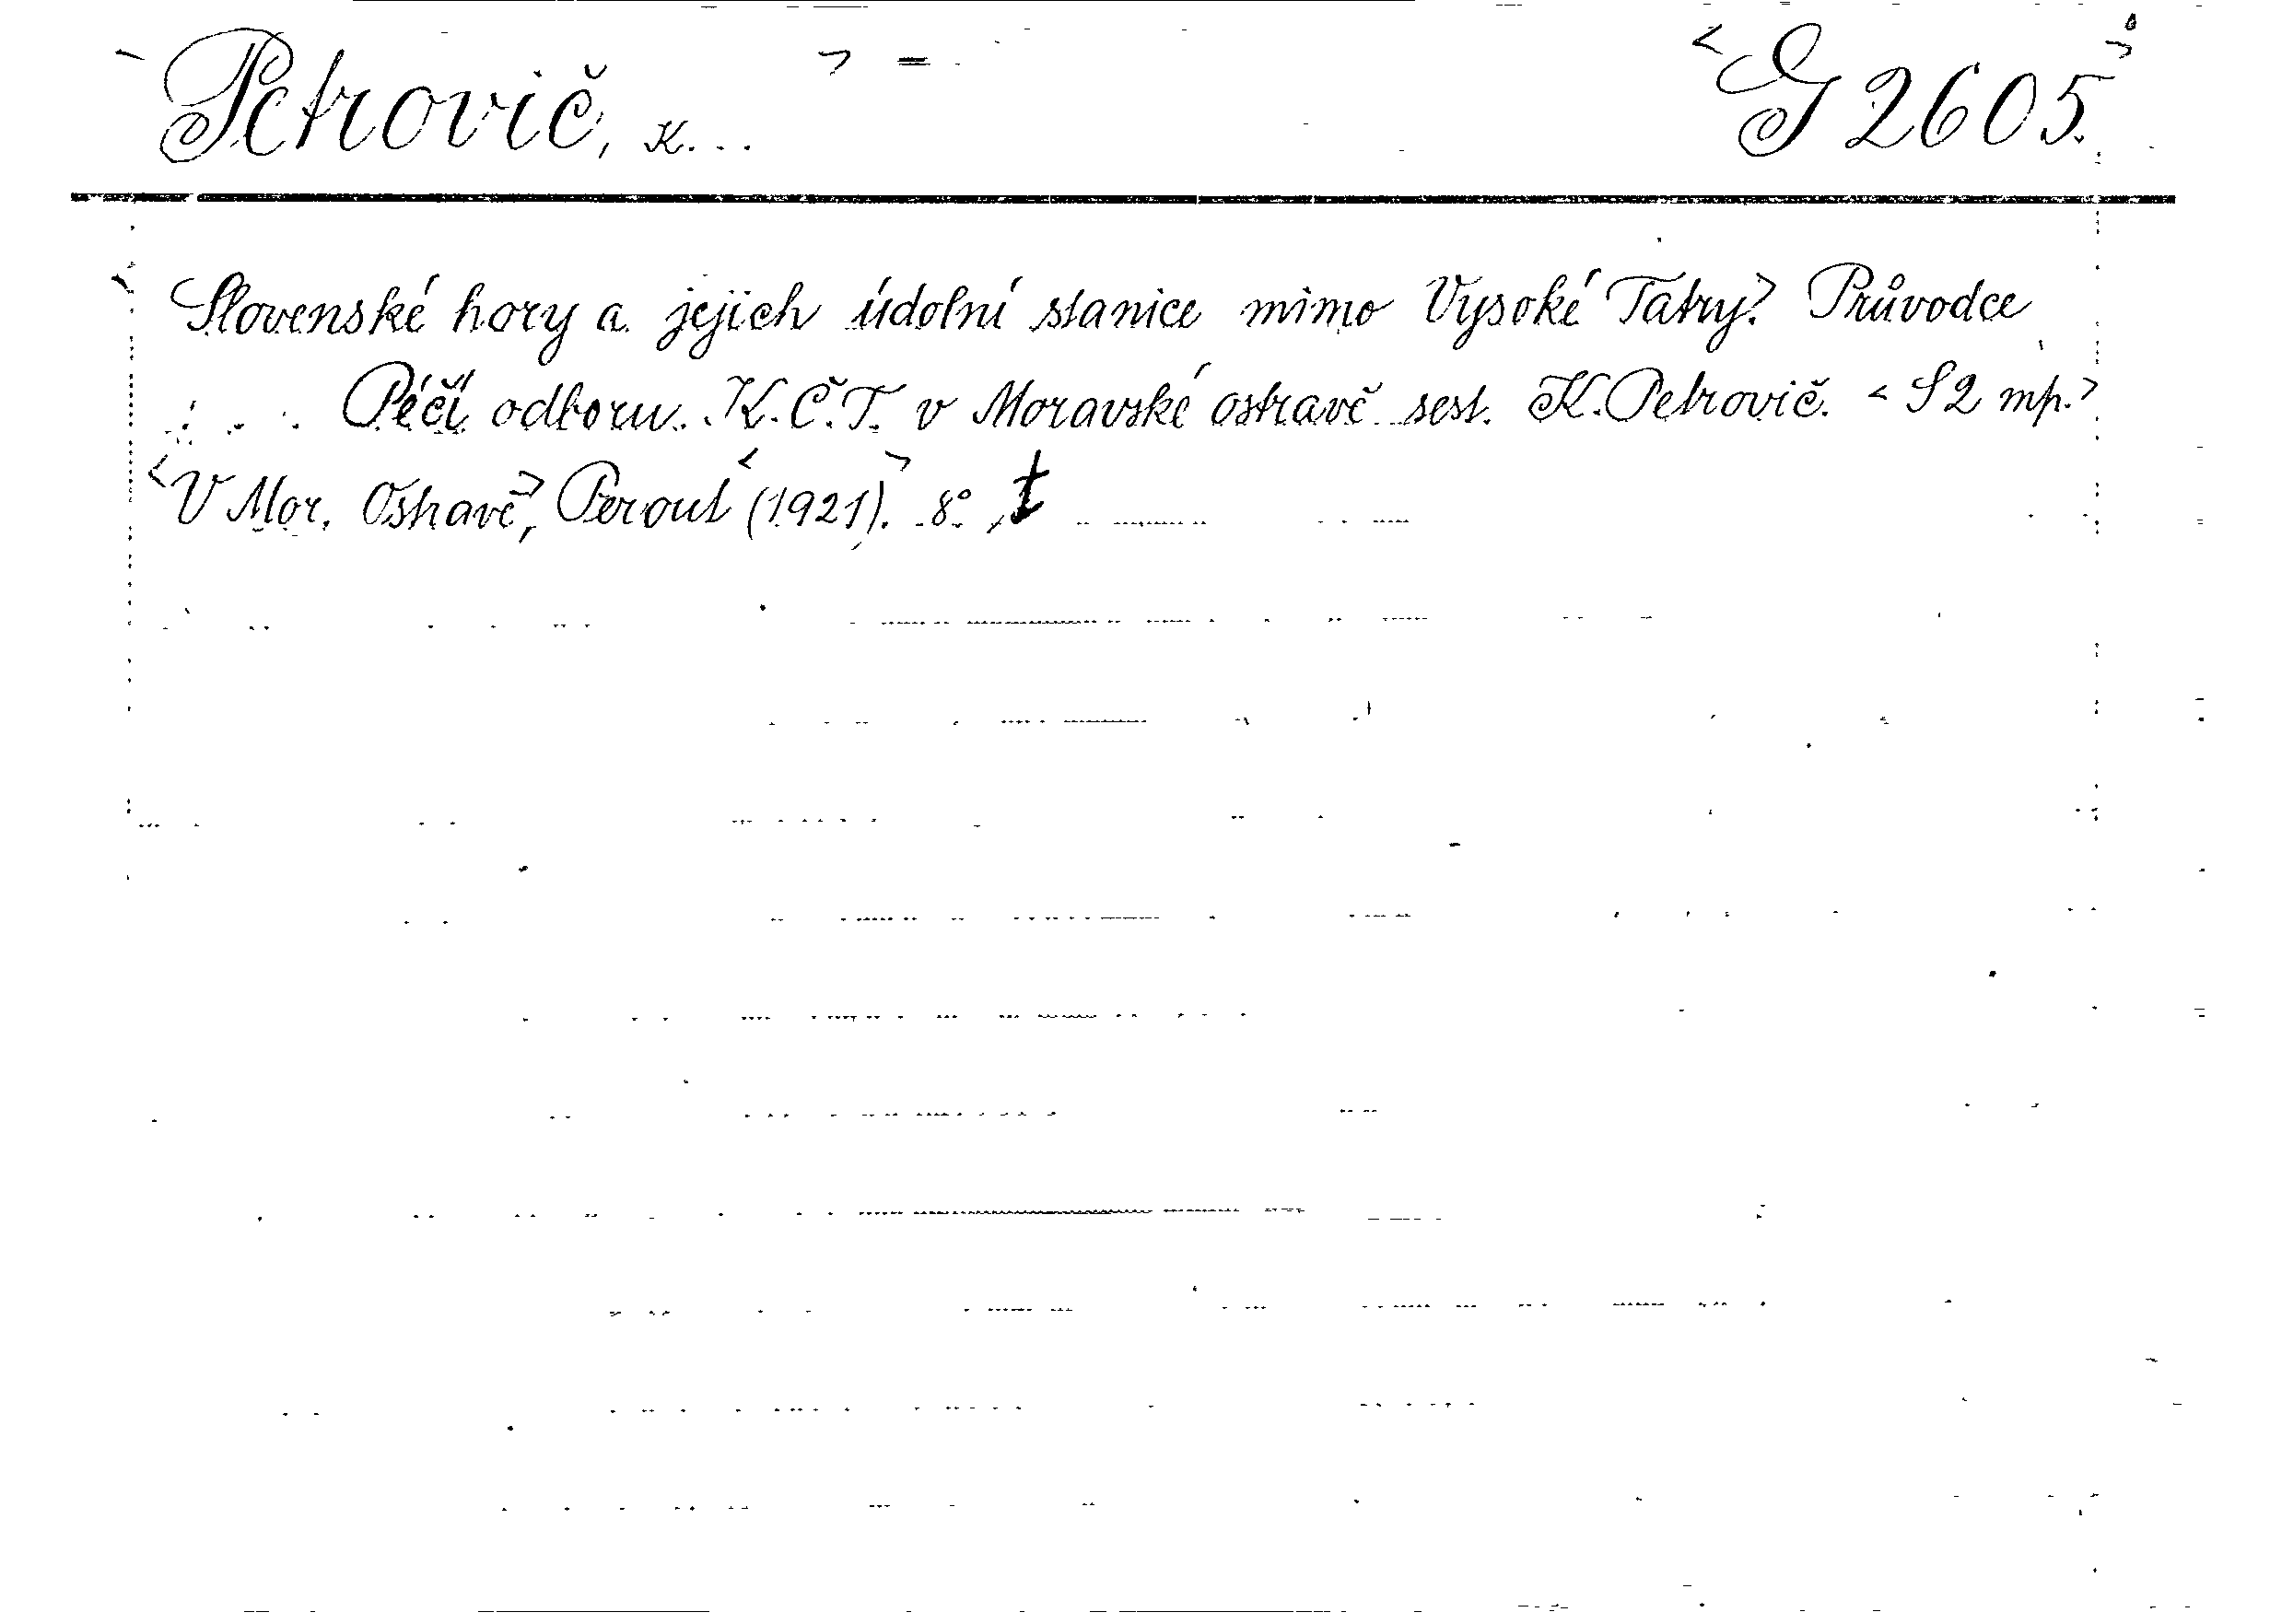 Petrovič, K... > = <G 2605.>
<Slovenské hory a jejich údolní stanice mimo Vysoké Tatry.> Průvodce
Péčí odboru K.Č.T. v Moravské ostravě sest. K. Petrovič. <S 2 mp.>
<V Mor. Ostravě,> Perout <(1921).> 8°